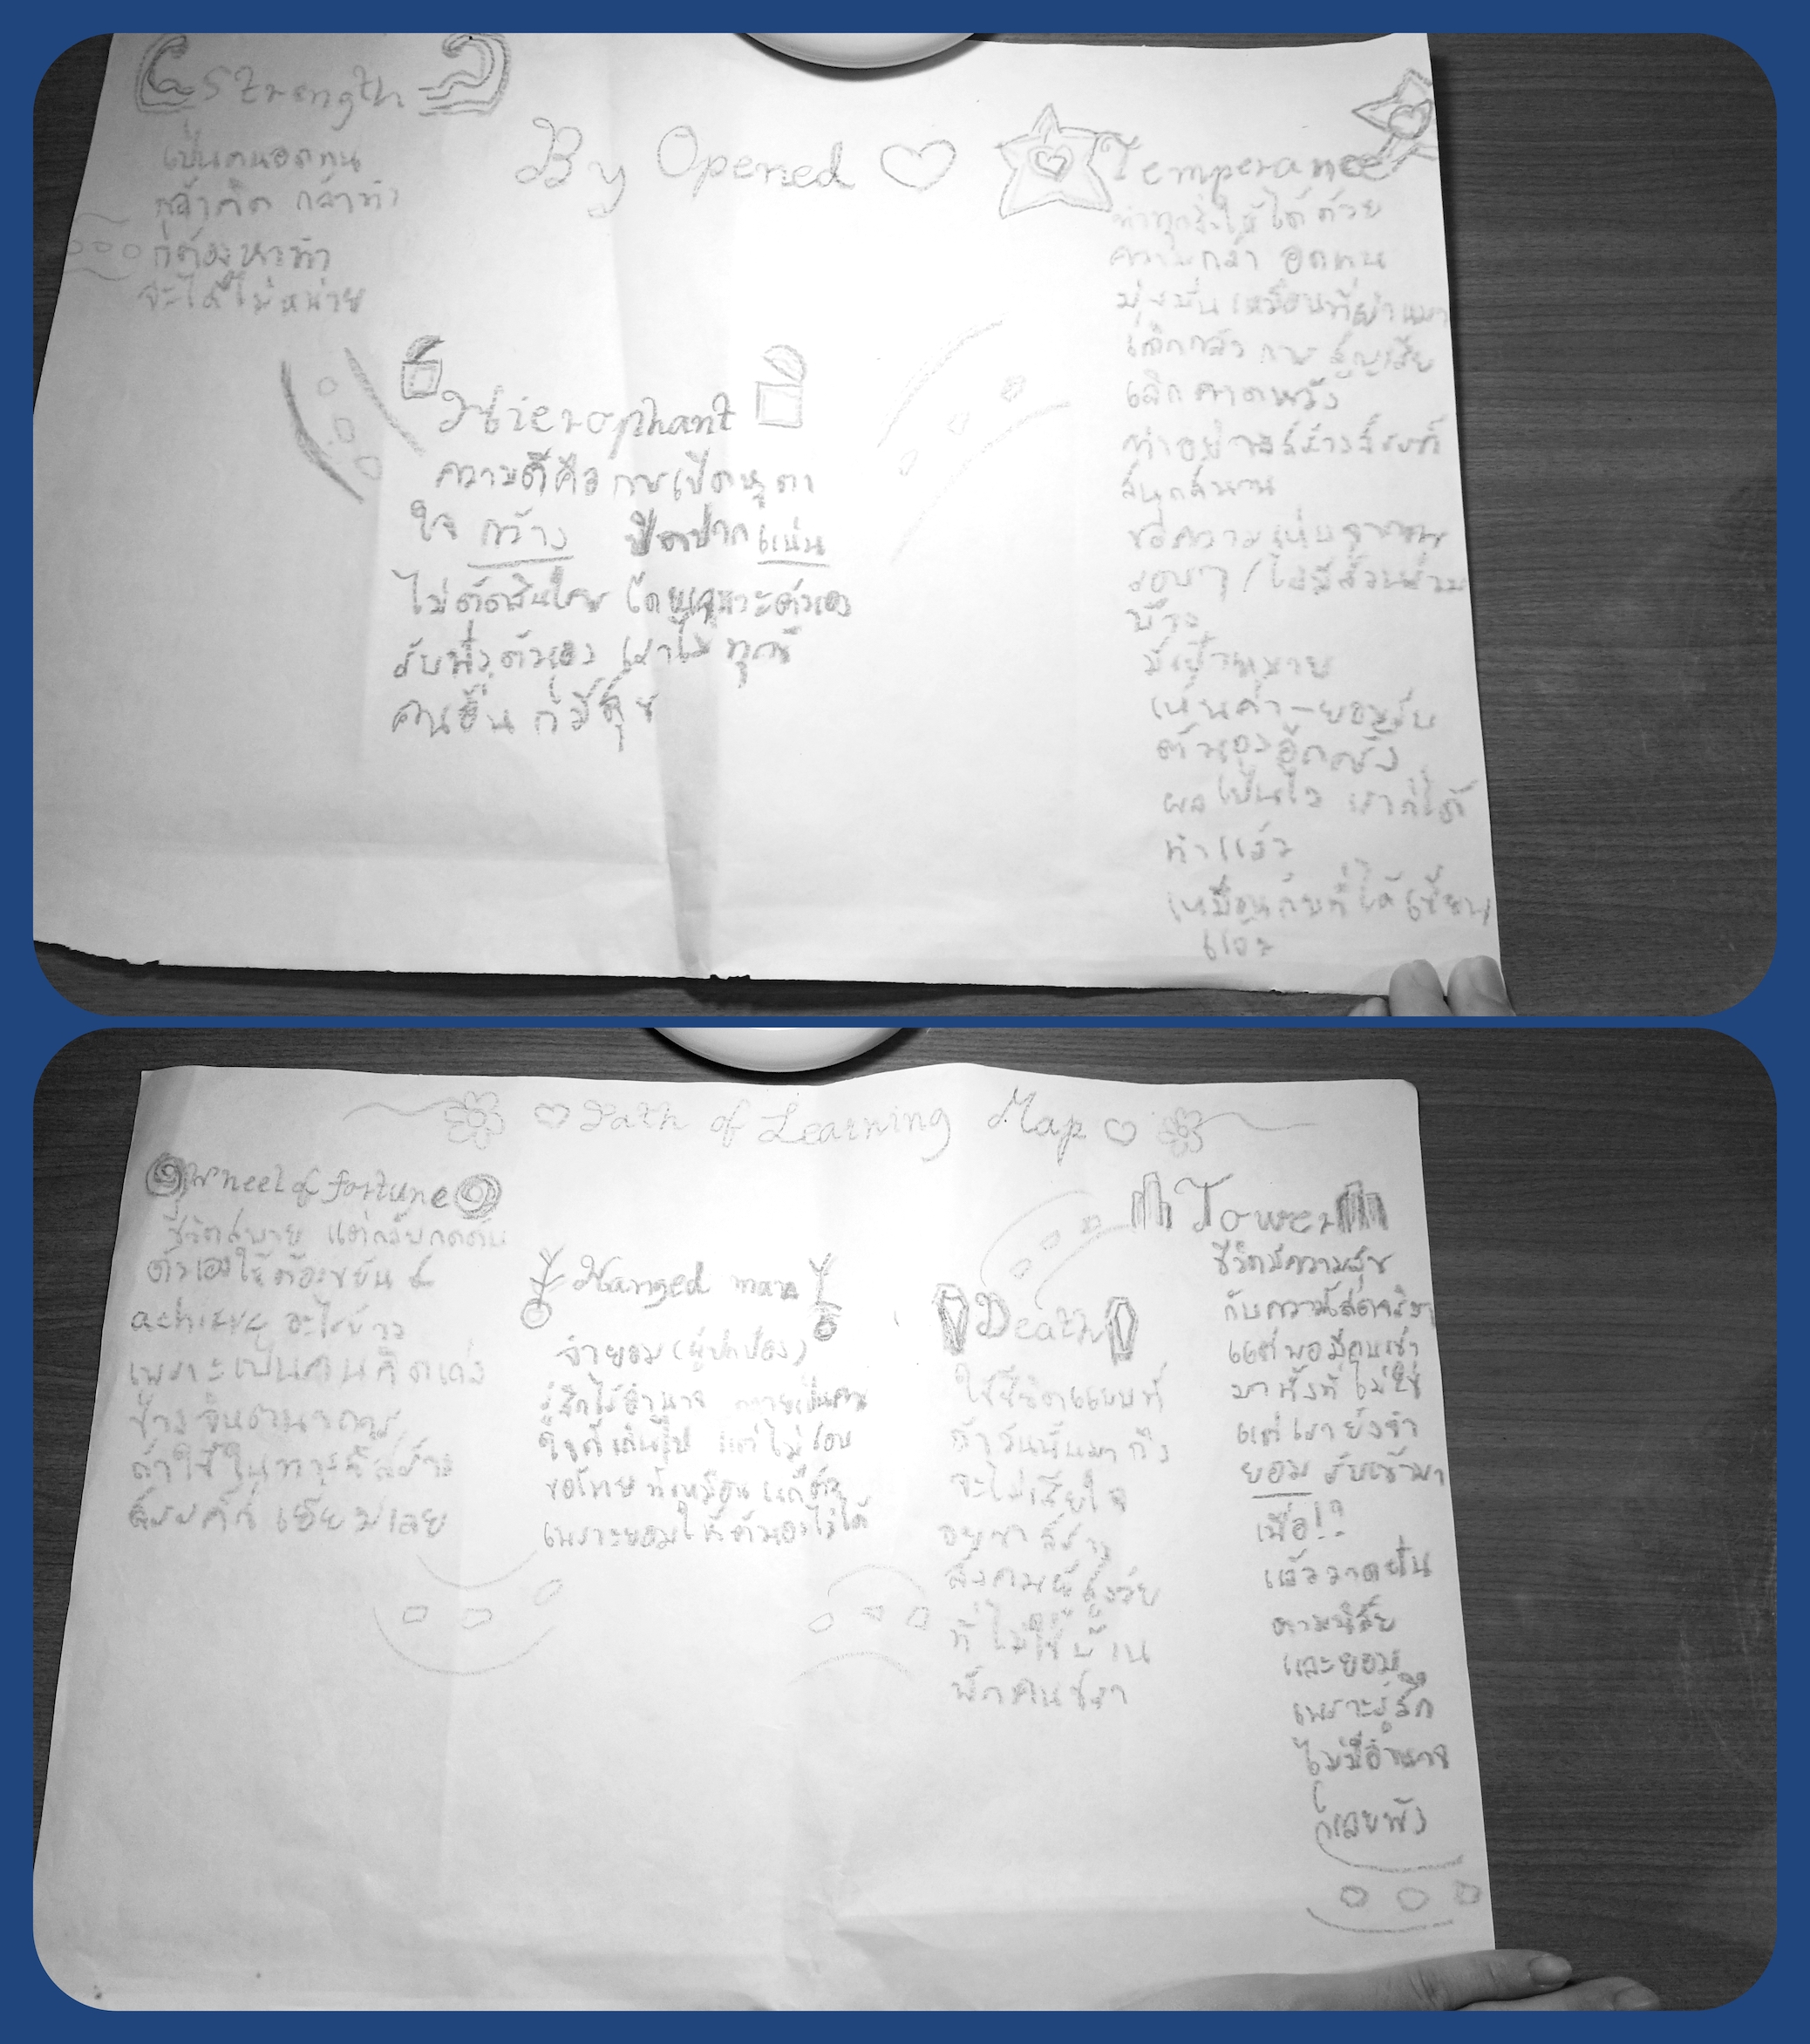 Strength
เป็นคนอดทน
กล้าคิด กล้าทำ
ก็ต้องหาทำ
จะได้ไม่หน่าย
By Opened
Hierophant
ความดีคือ การเปิดหู ตา
ใจ กว้าง ปิดปากแน่น
ไม่ตัดสินใคร โดยเฉพาะตัวเอง
รับฟังตัวเอง เราไม่ทุกข์
คนอื่น ก็มีสุข
Temperance
ทำทุกสิ่งให้ได้ด้วย
ความกล้า อดทน
มุ่งมั่น เหมือนที่ผ่านมา
เลิกกลัว การสูญเสีย
เลิกคาดหวัง
ทำอย่างสร้างสรรค์
สนุกสนาน
ขอความเห็นจากคน
รอบๆ / ให้มีส่วนร่วม
บ้าง
มีเป้าหมาย
เห็นค่า – ยอมรับ
ตัวเองอีกครั้ง
ผลเป็นไง เราก็ได้
ทำแล้ว
เหมือนกับที่ได้เขียน
แล้ว
Path of Learning Map
Wheel of fortune
ชีวิตสบาย แต่กลับกดดัน
ตัวเองให้ต้องขยัน &
achieve อะไรบ้าง
เพราะเป็นคนคิดเก่ง
ช่างจินตนาการ
ถ้าใช้ในทางที่สร้าง
สรรค์ก็เยี่ยมเลย
Hanged man
จำยอม (ผู้ปกป้อง)
รู้สึกไร้อำนาจ กลายเป็นคน
ใจดีเกินไป แต่ไม่ชอบ
ขอโทษ
เพราะยอมให้ตัวเองไม่ได้
Death
ใช้ชีวิตแบบที่
ถ้าวันนั้นมาถึง
จะไม่เสียใจ
อยากสร้าง
สังคมผู้สูงวัย
ที่ไม่ใช่บ้าน
พักคนชรา
Tower
ชีวิตมีความสุข
กับความโสดจริงๆ
แต่พอมีคนเข้า
มาทั้งที่ไม่ใช่
แต่เรายังจำ
ยอม รับเข้ามา
เพื่อ!?
แล้ววาดฝัน
ตามนิสัย
และยอม
เพราะรู้สึก
ไม่มีอำนาจ
ก็เลยพัง